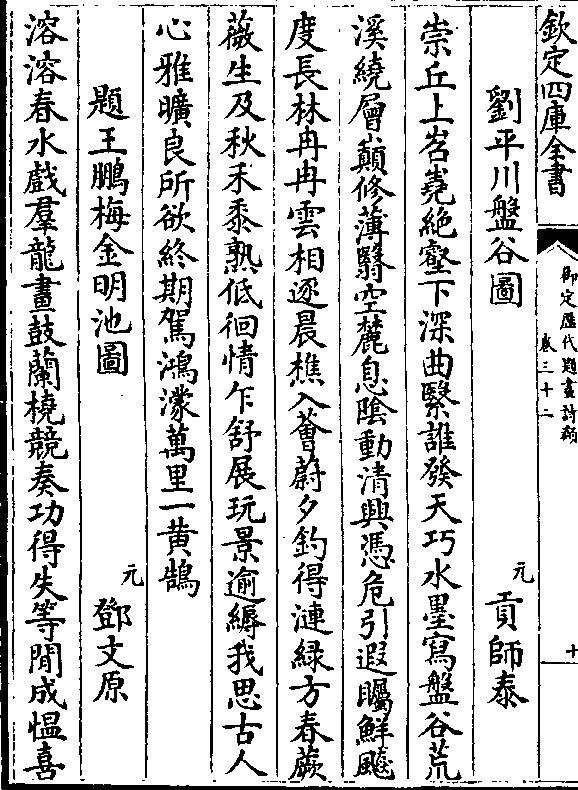 欽定四庫全書
御定歷代題畫詩類
卷三十二
十
劉平川盤谷圖
元
貢師泰
崇丘上岧嶤絶壑下深曲繄誰發天巧水墨寫盤谷荒
溪繞層巔修薄翳空麓息隂動清興憑危引遐矚鮮飈
度長林冉冉雲相逐晨樵入薈蔚夕釣得漣緑方春蕨
薇生及秋禾黍熟低徊情乍舒展玩景逾縟我思古人
心雅曠良所欲終期駕鴻濛萬里一黄鵠
題王鵬梅金明池圖
元
鄧文原
溶溶春水戲羣龍畫鼓蘭橈競奏功得失等閒成愠喜